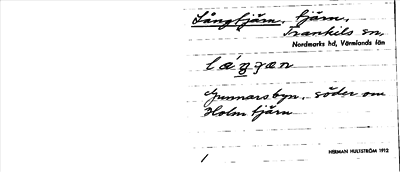 Långtjärn, tjärn,
Trankils sn,
Nordmarks hd, Värmlands län
Gunnarsbyn, söder om
Holmtjärn
HERMAN HULTSTRÖM 1912
1